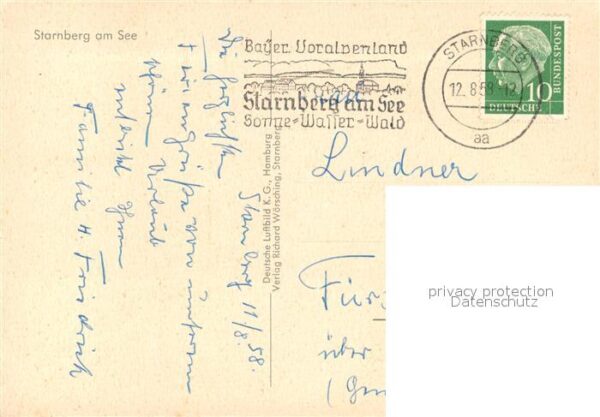 Starnberg am See
Bayer. Voralpenland
Starnberg am See
Sonne-Wasser-Wald
STARNBERG
12. 8. 58 - 12
aa
DEUTSCHE
BUNDESPOST
10
Deutsche Luftbild K. G., Hamburg
Verlag Richard Wörsching, Starnberg
Starnberg 11/8. 58.
Die herzlichsten
Grüße vom unserem
schönen Urlaub
Ihnen
Familie H. Friedrich
Lindner
über
privacy protection
Datenschutz